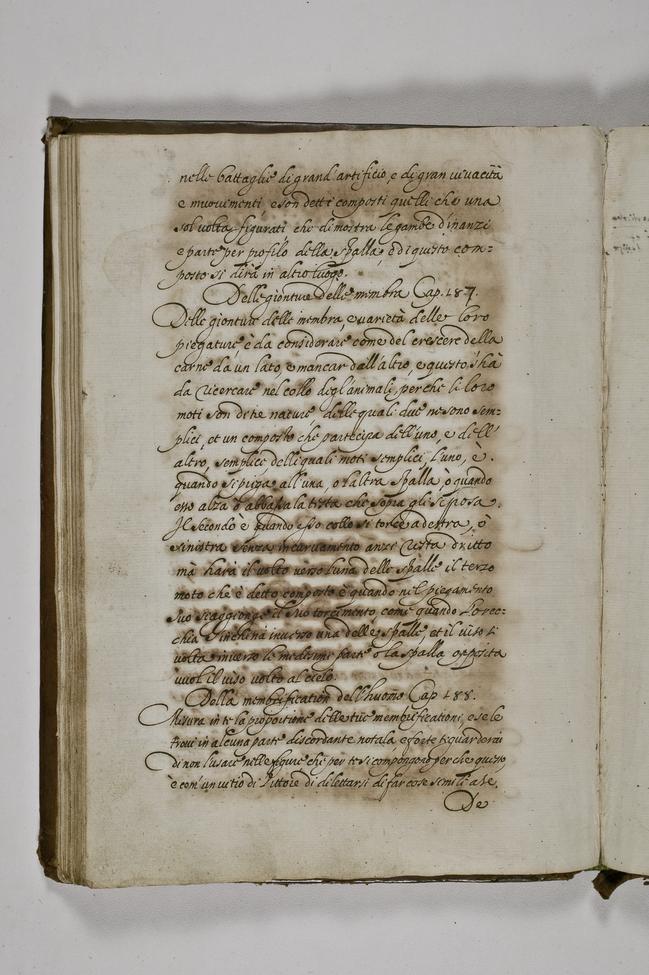 nelle battaglie di grand' artificio, e di gran vivacità
e muovimenti e son detti composti quelli che una
sol volta figurati, che dimostra le gambe dinanzi
e parte per profilo della spalla, e di questo com=
posto si dirà in altro luogo.
Delle gionture delle membra Cap. 187.
Delle gionture delle membra, e varietà delle loro
piegature è da considerare come del crescere della
carne da un lato, e mancar dall'altro, e questo s'hà
da ricercare nel collo degl'animali, perche li loro
moti son di tre nature delle quali due ne sono sem=
plici, et un composto che partecipa dell'uno, e dell'
altro, semplice delli quali moti semplici l'uno, e.
quando si piega all'una, o l'altra spalla ò quando
esso alza ò abbassa la testa che sopra gli si posa.
Il secondo è quando esso collo si torce a destra, ò
sinistra senza incurvamento anze resta dritto
mà harà il volto verso l'una delle spalle il terzo
moto che è detto composto è quando nel piegamento
suo s'aggionge il suo torcimento come quando l'orec=
chia s'inchina inverso una delle spalle, et il viso si
volta inverso le medesime parte o la spalla opposita
vuol il viso volto al cielo.
Della membrification dell'huomo Cap 188.
Misura in te la proportione delle tue membrificationi, e se le
trovi in alcuna parte discordante notala e forte ti guarderai
di non l'usare nelle figure che per te si compongono perche questo
è com'un vitio di Pittore di dilettarsi di far cose simili a se.
De